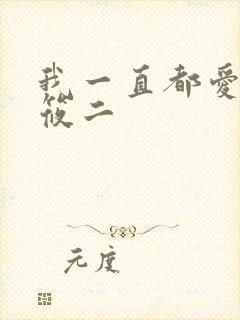 我一直都愛
筱二
元度